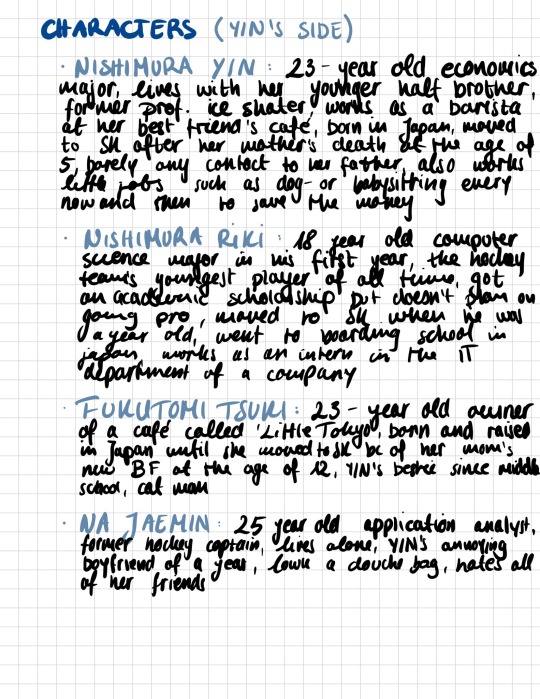 CHARACTERS (YIN'S SIDE)
· NISHIMURA YIN: 23-year old economics
major, lives with her younger half brother,
former prof. ice skater, works as a barista
at her best friend's café, born in Japan, moved
to SK after her mother's death at the age of
5, barely any contact to her father, also works
little jobs such as dog- or babysitting every
now and then to save the money
· NISHIMURA RIKI: 18 year old computer
science major in his first year, the hockey
team's youngest player of all time, got
an academic scholarship but doesn't plan on
going pro, moved to SK when he was
a year old, went to boarding school in
japan, works as an intern in the IT
department of a company
· FUKUTOMI TSUKI: 23-year old owner
of a café called 'Little Tokyo', born and raised
in Japan until she moved to SK bc of her mom's
new BF at the age of 12, YIN's bestie since middle
school, cat mom
· NA JAEMIN: 25 year old application analyst,
former hockey captain, lives alone, YIN's annoying
boyfriend of a year, a douche bag, hates all
of her friends